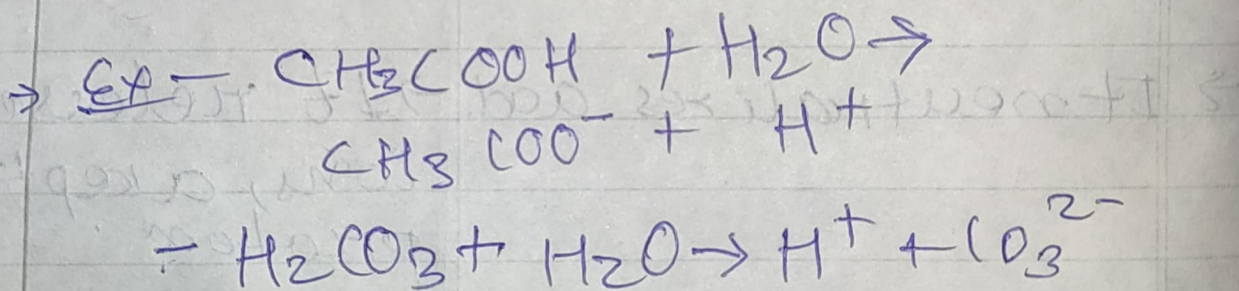 → Ex - CH3COOH + H2O →
CH3COO⁻ + H⁺
- H2CO3 + H2O → H⁺ + CO3²⁻